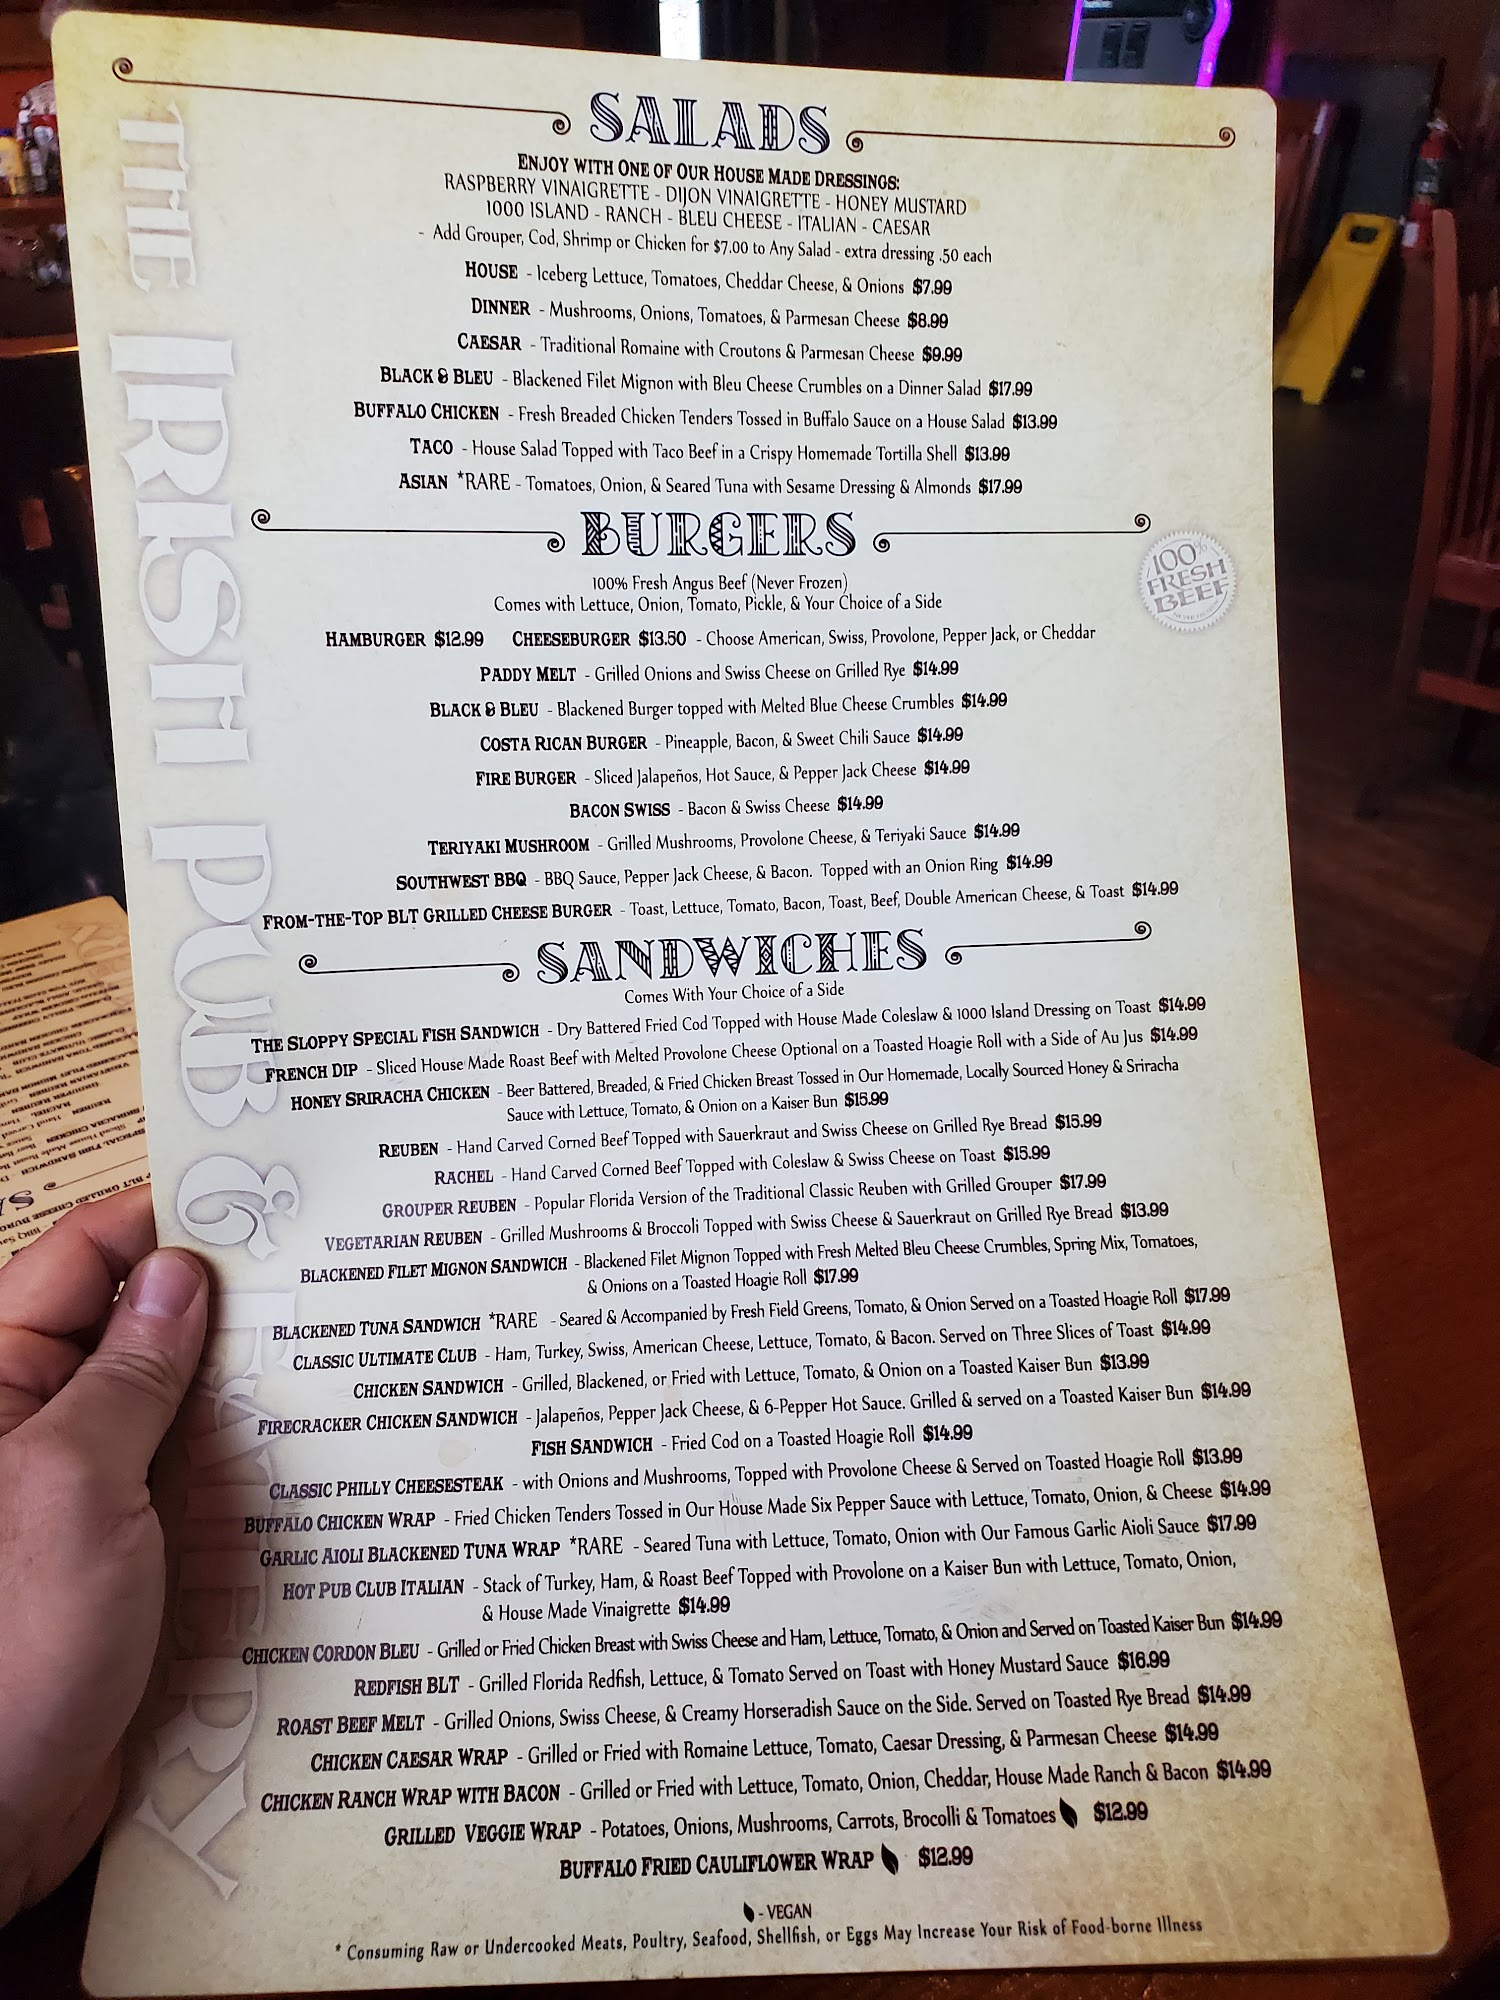 THE IRISH PUB & EATERY
SALADS
ENJOY WITH ONE OF OUR HOUSE MADE DRESSINGS:
RASPBERRY VINAIGRETTE - DIJON VINAIGRETTE - HONEY MUSTARD
1000 ISLAND - RANCH - BLEU CHEESE - ITALIAN - CAESAR
- Add Grouper, Cod, Shrimp or Chicken for $7.00 to Any Salad - extra dressing .50 each
HOUSE - Iceberg Lettuce, Tomatoes, Cheddar Cheese, & Onions $7.99
DINNER - Mushrooms, Onions, Tomatoes, & Parmesan Cheese $8.99
CAESAR - Traditional Romaine with Croutons & Parmesan Cheese $9.99
BLACK & BLEU - Blackened Filet Mignon with Bleu Cheese Crumbles on a Dinner Salad $17.99
BUFFALO CHICKEN - Fresh Breaded Chicken Tenders Tossed in Buffalo Sauce on a House Salad $13.99
TACO - House Salad Topped with Taco Beef in a Crispy Homemade Tortilla Shell $13.99
ASIAN *RARE - Tomatoes, Onion, & Seared Tuna with Sesame Dressing & Almonds $17.99
BURGERS
100% FRESH BEEF
100% Fresh Angus Beef (Never Frozen)
Comes with Lettuce, Onion, Tomato, Pickle, & Your Choice of a Side
HAMBURGER $12.99 CHEESEBURGER $13.50 - Choose American, Swiss, Provolone, Pepper Jack, or Cheddar
PADDY MELT - Grilled Onions and Swiss Cheese on Grilled Rye $14.99
BLACK & BLEU - Blackened Burger topped with Melted Blue Cheese Crumbles $14.99
COSTA RICAN BURGER - Pineapple, Bacon, & Sweet Chili Sauce $14.99
FIRE BURGER - Sliced Jalapeños, Hot Sauce, & Pepper Jack Cheese $14.99
BACON SWISS - Bacon & Swiss Cheese $14.99
TERIYAKI MUSHROOM - Grilled Mushrooms, Provolone Cheese, & Teriyaki Sauce $14.99
SOUTHWEST BBQ - BBQ Sauce, Pepper Jack Cheese, & Bacon. Topped with an Onion Ring $14.99
FROM-THE-TOP BLT GRILLED CHEESE BURGER - Toast, Lettuce, Tomato, Bacon, Toast, Beef, Double American Cheese, & Toast $14.99
SANDWICHES
Comes With Your Choice of a Side
THE SLOPPY SPECIAL FISH SANDWICH - Dry Battered Fried Cod Topped with House Made Coleslaw & 1000 Island Dressing on Toast $14.99
FRENCH DIP - Sliced House Made Roast Beef with Melted Provolone Cheese Optional on a Toasted Hoagie Roll with a Side of Au Jus $14.99
HONEY SRIRACHA CHICKEN - Beer Battered, Breaded, & Fried Chicken Breast Tossed in Our Homemade, Locally Sourced Honey & Sriracha
Sauce with Lettuce, Tomato, & Onion on a Kaiser Bun $15.99
REUBEN - Hand Carved Corned Beef Topped with Sauerkraut and Swiss Cheese on Grilled Rye Bread $15.99
RACHEL - Hand Carved Corned Beef Topped with Coleslaw & Swiss Cheese on Toast $15.99
GROUPER REUBEN - Popular Florida Version of the Traditional Classic Reuben with Grilled Grouper $17.99
VEGETARIAN REUBEN - Grilled Mushrooms & Broccoli Topped with Swiss Cheese & Sauerkraut on Grilled Rye Bread $13.99
BLACKENED FILET MIGNON SANDWICH - Blackened Filet Mignon Topped with Fresh Melted Bleu Cheese Crumbles, Spring Mix, Tomatoes,
& Onions on a Toasted Hoagie Roll $17.99
BLACKENED TUNA SANDWICH *RARE - Seared & Accompanied by Fresh Field Greens, Tomato, & Onion Served on a Toasted Hoagie Roll $17.99
CLASSIC ULTIMATE CLUB - Ham, Turkey, Swiss, American Cheese, Lettuce, Tomato, & Bacon. Served on Three Slices of Toast $14.99
CHICKEN SANDWICH - Grilled, Blackened, or Fried with Lettuce, Tomato, & Onion on a Toasted Kaiser Bun $13.99
FIRECRACKER CHICKEN SANDWICH - Jalapeños, Pepper Jack Cheese, & 6-Pepper Hot Sauce. Grilled & served on a Toasted Kaiser Bun $14.99
FISH SANDWICH - Fried Cod on a Toasted Hoagie Roll $14.99
CLASSIC PHILLY CHEESESTEAK - with Onions and Mushrooms, Topped with Provolone Cheese & Served on Toasted Hoagie Roll $13.99
BUFFALO CHICKEN WRAP - Fried Chicken Tenders Tossed in Our House Made Six Pepper Sauce with Lettuce, Tomato, Onion, & Cheese $14.99
GARLIC AIOLI BLACKENED TUNA WRAP *RARE - Seared Tuna with Lettuce, Tomato, Onion with Our Famous Garlic Aioli Sauce $17.99
HOT PUB CLUB ITALIAN - Stack of Turkey, Ham, & Roast Beef Topped with Provolone on a Kaiser Bun with Lettuce, Tomato, Onion,
& House Made Vinaigrette $14.99
CHICKEN CORDON BLEU - Grilled or Fried Chicken Breast with Swiss Cheese and Ham, Lettuce, Tomato, & Onion and Served on Toasted Kaiser Bun $14.99
REDFISH BLT - Grilled Florida Redfish, Lettuce, & Tomato Served on Toast with Honey Mustard Sauce $16.99
ROAST BEEF MELT - Grilled Onions, Swiss Cheese, & Creamy Horseradish Sauce on the Side. Served on Toasted Rye Bread $14.99
CHICKEN CAESAR WRAP - Grilled or Fried with Romaine Lettuce, Tomato, Caesar Dressing, & Parmesan Cheese $14.99
CHICKEN RANCH WRAP WITH BACON - Grilled or Fried with Lettuce, Tomato, Onion, Cheddar, House Made Ranch & Bacon $14.99
GRILLED VEGGIE WRAP - Potatoes, Onions, Mushrooms, Carrots, Brocolli & Tomatoes $12.99
BUFFALO FRIED CAULIFLOWER WRAP $12.99
- VEGAN
* Consuming Raw or Undercooked Meats, Poultry, Seafood, Shellfish, or Eggs May Increase Your Risk of Food-borne Illness